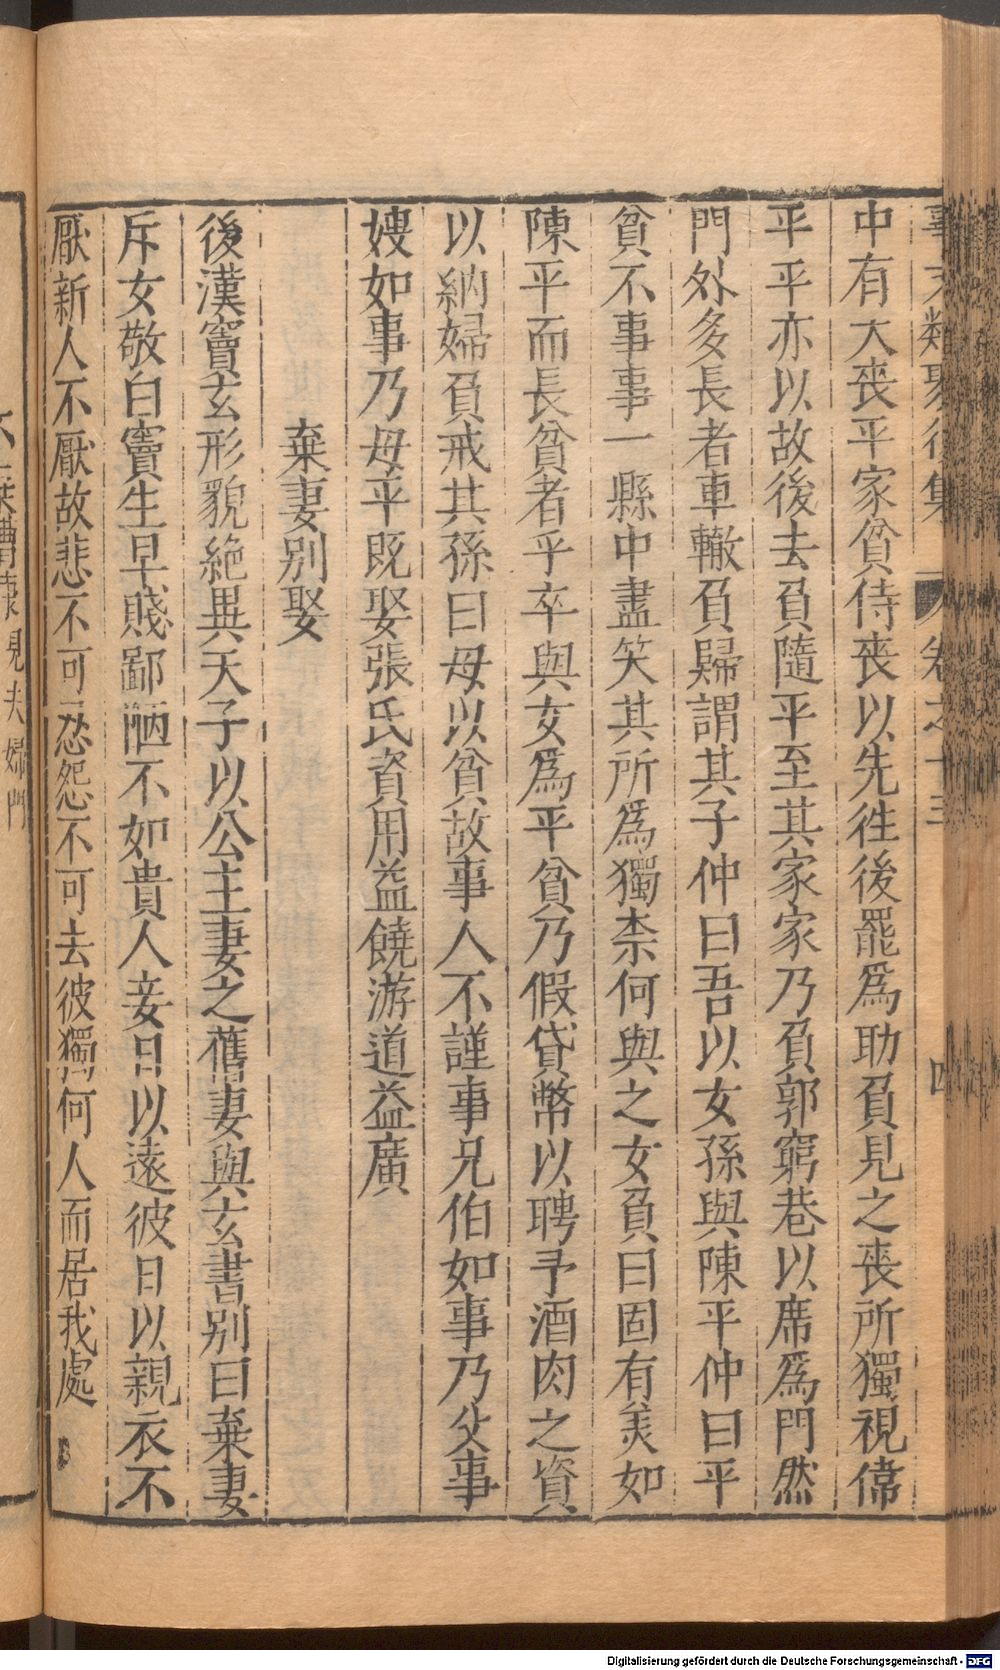 事文類聚後集 卷之十三 四
中有大喪平家貧侍喪以先徃後罷爲助負見之喪所獨視偉
平平亦以故後去負隨平至其家家乃負郭窮巷以席爲門然
門外多長者車轍負歸謂其子仲曰吾以女孫與陳平仲曰平
貧不事事一縣中盡笑其所爲獨柰何與之女負曰固有美如
陳平而長貧者乎卒與女爲平貧乃假貸幣以聘予酒肉之資
以納婦負戒其孫曰母以貧故事人不謹事兄伯如事乃父事
嫂如事乃母平既娶張氏資用益饒游道益廣
棄妻别娶
後漢竇玄形貌絶異天子以公主妻之舊妻與玄書别曰棄妻
斥女敬白竇生早賤鄙陋不如貴人妾日以遠彼日以親衣不
厭新人不厭故悲不可忍怨不可去彼獨何人而居我處
見夫婦門
Digitalisierung gefördert durch die Deutsche Forschungsgemeinschaft - DFG